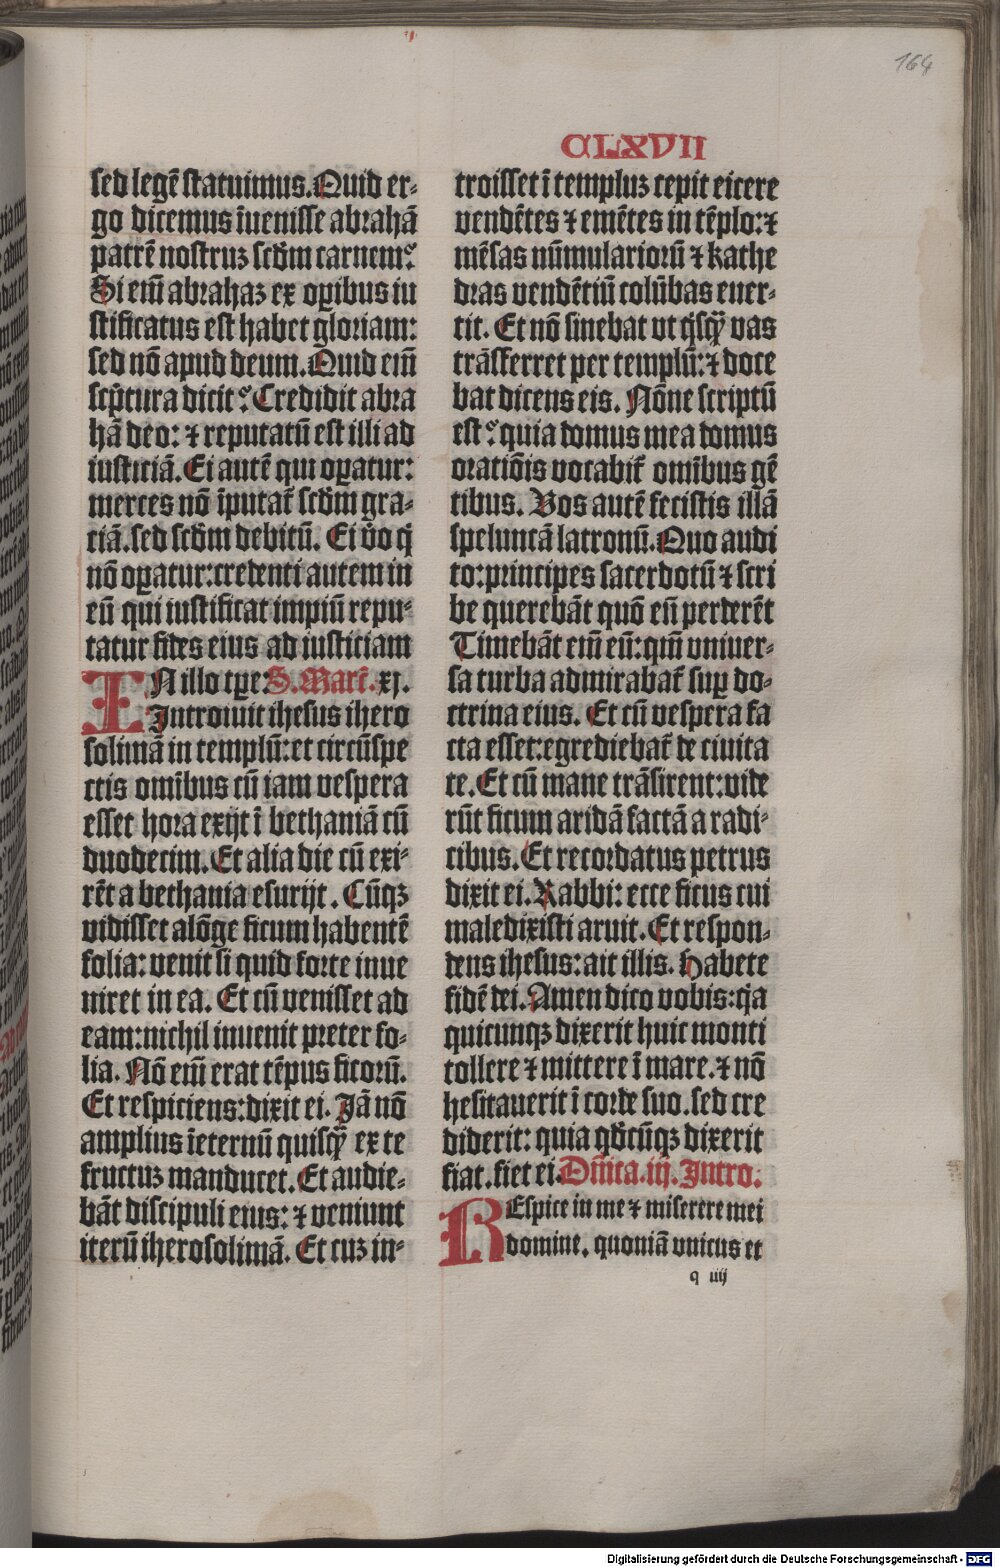 164
CLXVII
sed legē statuimus. Quid er-
go dicemus īuenisse abrahā
patrē nostruꝫ scd̄m carnem?
Si em̄ abrahaꝫ ex oꝑibus iu
stificatus est habet gloriam:
sed nō apud deum. Quid em̄
scp̄tura dicit? Credidit abra
hā deo: ⁊ reputatū est illi ad
iusticiā. Ei autē qui oꝑatur:
merces nō īputat̄ scd̄m gra-
ciā. sed scd̄m debitū. Ei v̄o q̄
nō oꝑatur: credenti autem in
eū qui iustificat impiū repu-
tatur fides eius ad iusticiam
IN illo tꝑe S. Marc̄. xj.
Introiuit ihesus ihero
solimā in templū: et circūspe
ctis omībus cū iam vespera
esset hora exijt ī bethaniā cū
duodecim. Et alia die cū exi-
rēt a bethania esurijt. Cūqꝫ
vidisset alōge ficum habentē
folia: venit si quid forte inue
niret in ea. Et cū venisset ad
eam: nichil inuenit preter fo-
lia. Nō em̄ erat tēpus ficorū.
Et respiciens: dixit ei. Jā nō
amplius īeternū quisqꝫ̄ ex te
fructuꝫ manducet. Et audie-
bāt discipuli eius: ⁊ veniunt
iterū iherosolimā. Et cuꝫ in-
troisset ī templuꝫ cepit eicere
vendētes ⁊ emētes in tēplo: ⁊
mēsas nūmulariorū ⁊ kathe
dras vendētiū colūbas euer-
tit. Et nō sinebat vt q̇sqꝫ̄ vas
trāsferret per templū: ⁊ doce
bat dicens eis. Nōne scriptū
est? quia domus mea domus
oratiōis vocabit̄ omībus gē
tibus. Vos autē fecistis illā
speluncā latronū. Quo audi
to: principes sacerdotū ⁊ scri
be querebāt quō eū perderēt
Timebāt em̄ eū: qm̄ vniuer-
sa turba admirabat̄ suꝑ do-
ctrina eius. Et cū vespera fa
cta esset: egrediebat̄ de ciuita
te. Et cū mane trāsirent: vide
rūt ficum aridā factā a radi-
cibus. Et recordatus petrus
dixit ei. Rabbi: ecce ficus cui
maledixisti aruit. Et respon-
dens ihesus: ait illis. Habete
fidē dei. Amen dico vobis: q̇a
quicunqꝫ dixerit huic monti
tollere ⁊ mittere ī mare. ⁊ nō
hesitauerit ī corde suo. sed cre
diderit: quia qd̄cūqꝫ dixerit
fiat. fiet ei. Dn̄ica. iij. Intro.
REspice in me ⁊ miserere mei
domine, quoniā vnicus et
q iiij
Digitalisierung gefördert durch die Deutsche Forschungsgemeinschaft - DFG